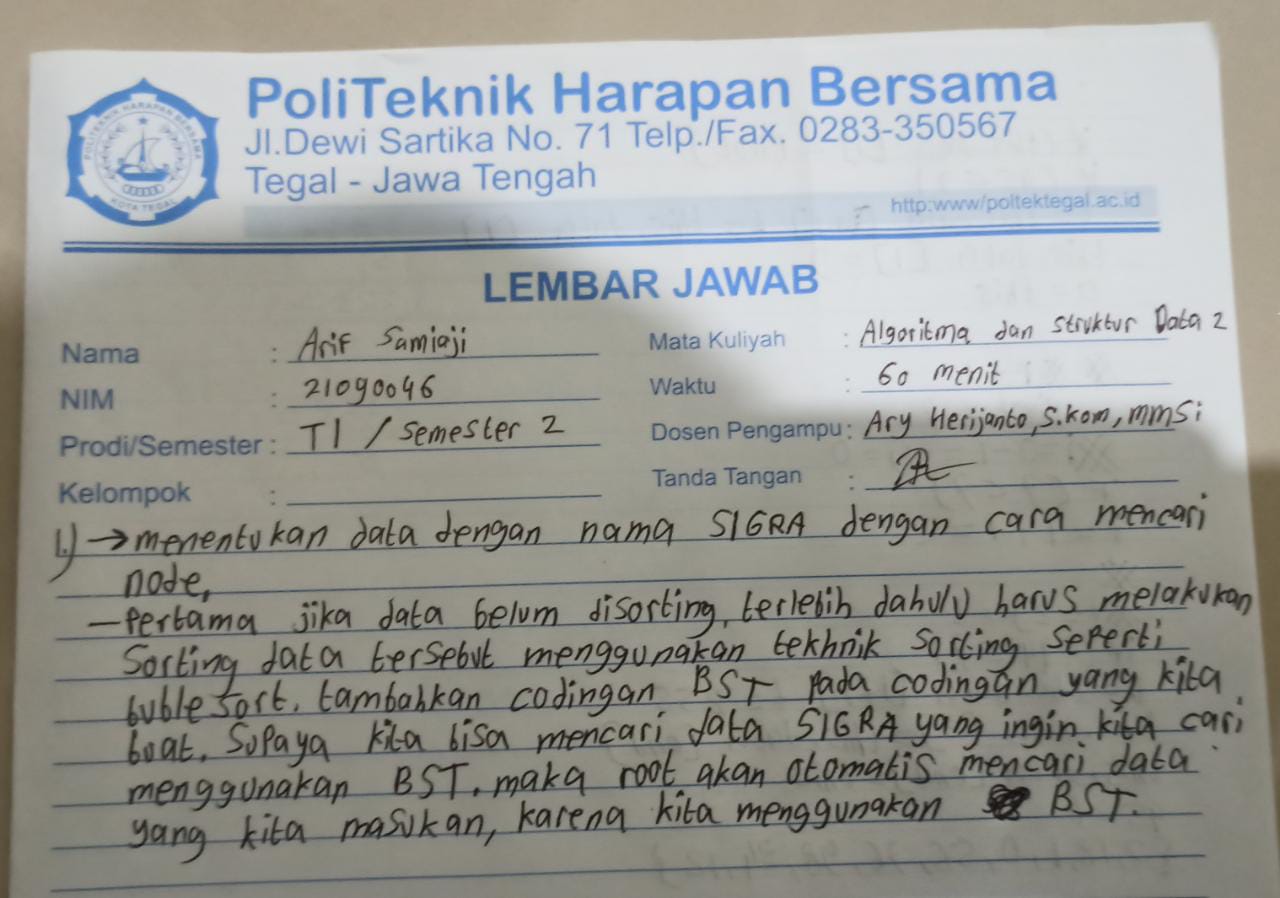 PoliTeknik Harapan Bersama
Jl.Dewi Sartika No. 71 Telp./Fax. 0283-350567
Tegal - Jawa Tengah
http:www/poltektegal.ac.id
POLITEKNIK HARAPAN BERSAMA
KOTA TEGAL
LEMBAR JAWAB
Nama : Arif Samiaji
Mata Kuliyah : Algoritma dan Struktur Data 2
NIM : 21090046
Waktu : 60 menit
Prodi/Semester : TI / Semester 2
Dosen Pengampu: Ary Herijanto, S.kom, mmSi
Kelompok :
Tanda Tangan :
1.) → menentukan data dengan nama SIGRA dengan cara mencari
node,
- Pertama jika data belum disorting, terlebih dahulu harus melakukan
Sorting data tersebut menggunakan tekhnik sorting seperti
buble sort. tambahkan codingan BST pada codingan yang kita
buat. Supaya kita bisa mencari data SIGRA yang ingin kita cari
menggunakan BST. maka root akan otomatis mencari data
yang kita masukan, karena kita menggunakan BST.